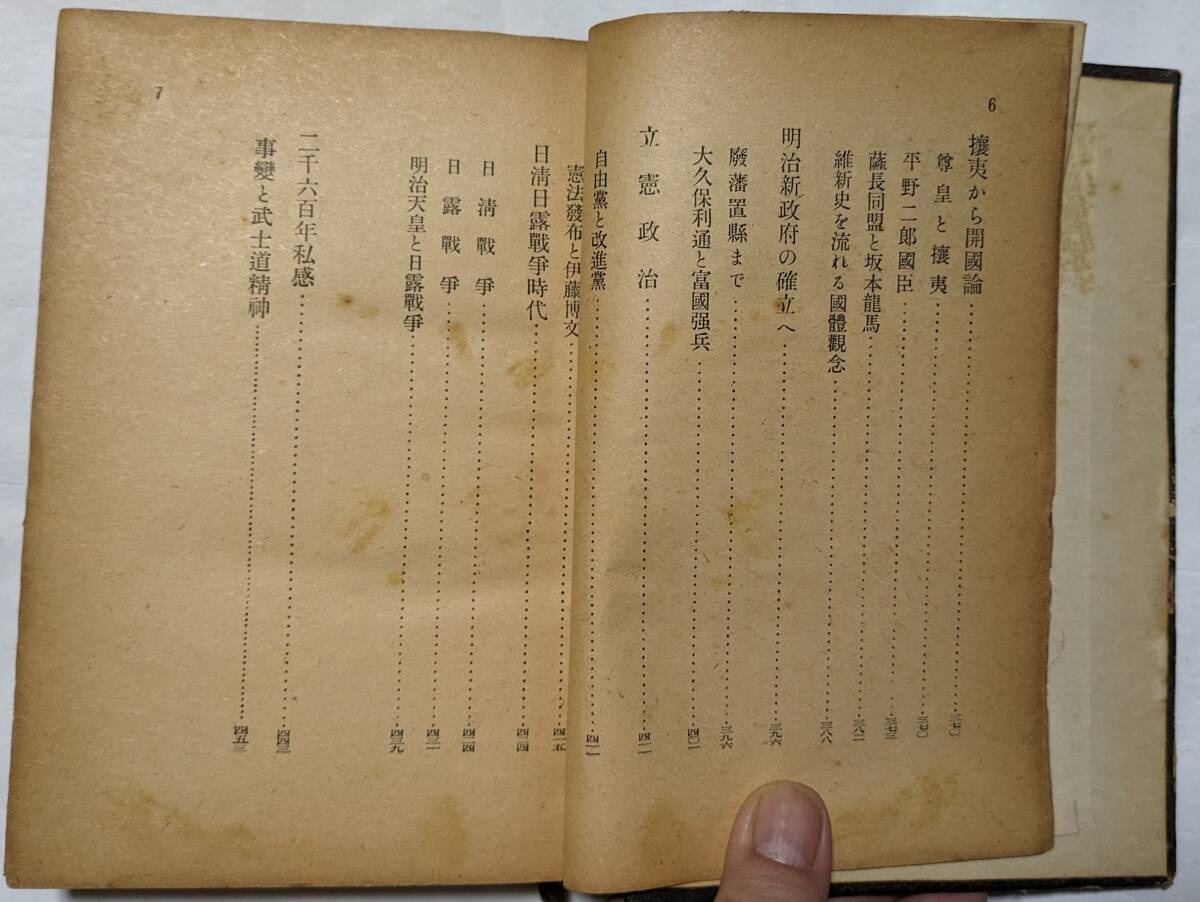 6
攘夷から開國論……三七〇
尊皇と攘夷……三七〇
平野二郞國臣……三七三
薩長同盟と坂本龍馬……三八二
維新史を流れる國體觀念……三八八
明治新政府の確立へ……三九六
廢藩置縣まで……三九六
大久保利通と富國强兵……四〇一
立憲政治……四一一
自由黨と改進黨……四一一
7
憲法發布と伊藤博文……四一五
日淸日露戰爭時代……四二四
日淸戰爭……四二四
日露戰爭……四三一
明治天皇と日露戰爭……四三九
二千六百年私感……四四三
事變と武士道精神……四五三